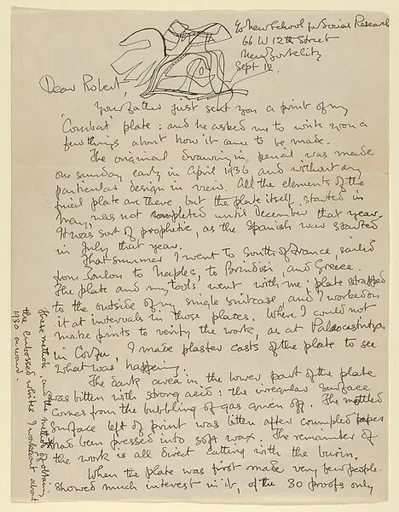 New School for Social Research
66 W 12th Street
New York City
Sept 12.
Dear Robert
Your father just sent you a print of my
'Combat' plate: and he asked me to write you a
few things about how it came to be made.
The original drawing in pencil was made
one sunday early in April 1936 and without any
particular design in view. All the elements of the
final plate are there, but the plate itself, started in
May, was not completed until December that year.
It was sort of prophetic, as the Spanish war started
in July that year.
That summer I went to South of France, sailed
from Toulon to Naples, to Brindisi, and Greece.
The plate and my tools went with me: plate strapped
to the outside of my single suitcase, and I worked on
it at intervals in those places. Where I could not
make prints to verify the work, as at Palaeocastritza
in Corfu, I made plaster casts of the plate to see
what was happening.
The dark area in the lower part of the plate
was bitten with strong acid: the irregular surface
comes from the bubbling of gas given off. The mottled
surface left of print was bitten after crumpled paper
had been pressed into soft wax. The remainder of
the work is all direct cutting with the burin.
When the plate was first made very few people
showed much interest in it, of the 30 proofs only
These methods and the method of obtaining
the embossed whites I worked out about
1930 onward.